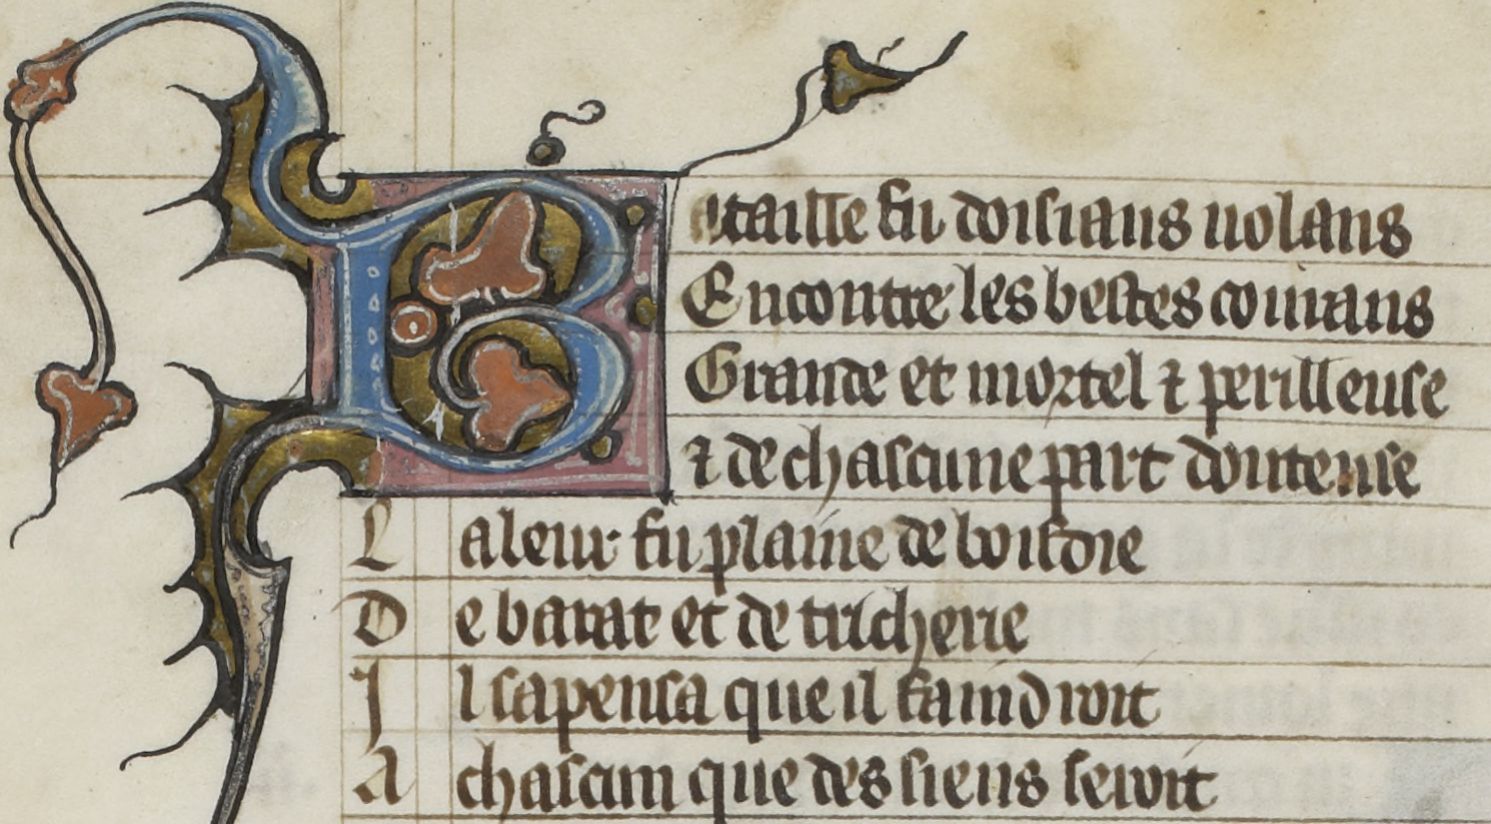 Bataille fu doisiaus uolans
Encontre les bestes courans
Grande et mortel ⁊ perilleuse
⁊ de chascune part douteuse
Laleur fu plaine de boisdie
De barat et de tricherie
Il sapensa que il faindroit
A chascun que des siens seroit